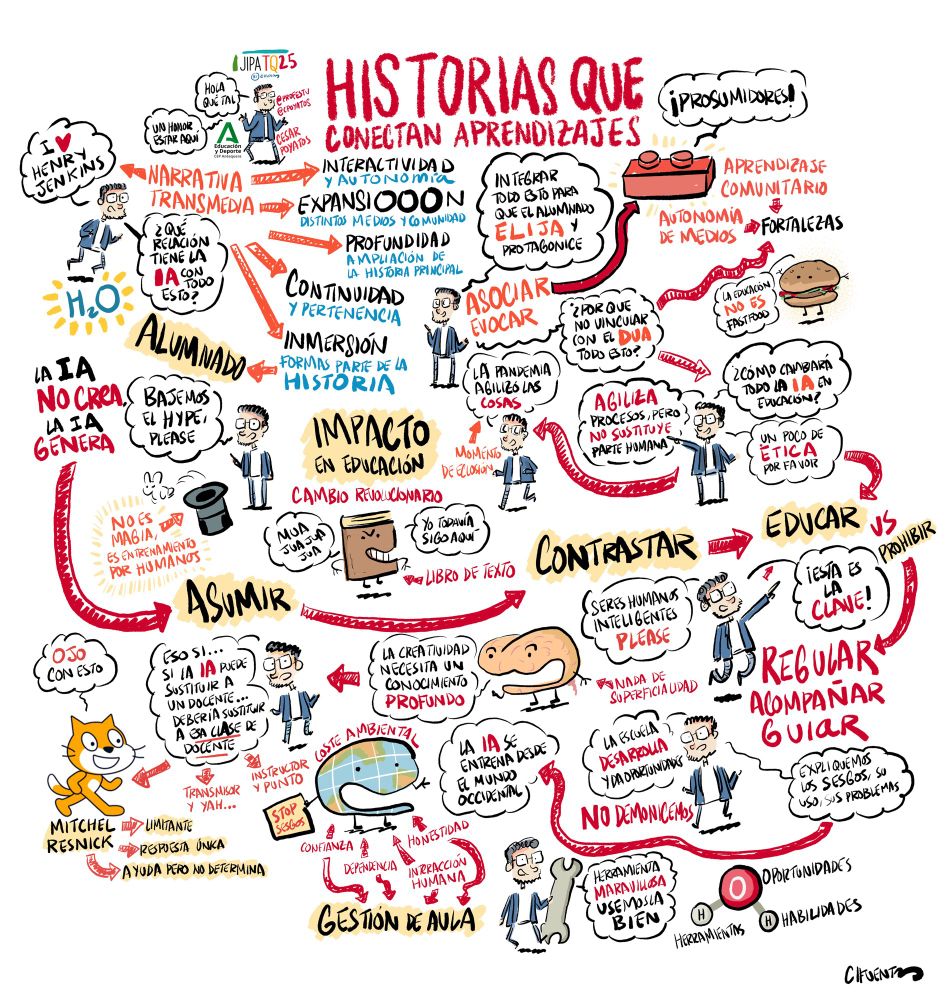 JIPATQ25
HOLA
QUÉ TAL
UN HONOR
ESTAR AQUÍ
@PROFESTU
@CPOYATOS
CÉSAR
POYATOS
Educación
y Deporte
HISTORIAS QUE
CONECTAN APRENDIZAJES
¡PROSUMIDORES!
I ♥
HENRY
JENKINS
NARRATIVA
TRANSMEDIA
INTERACTIVIDAD
Y AUTONOMÍA
EXPANSIOOON
DISTINTOS MEDIOS Y COMUNIDAD
PROFUNDIDAD
AMPLIACIÓN DE
LA HISTORIA PRINCIPAL
CONTINUIDAD
Y PERTENENCIA
INMERSIÓN
FORMAS PARTE DE LA
HISTORIA
ALUMNADO
¿QUÉ
RELACIÓN
TIENE LA
IA CON
TODO
ESTO?
H2O
INTEGRAR
TODO ESTO PARA
QUE EL ALUMNADO
ELIJA Y
PROTAGONICE
ASOCIAR
EVOCAR
APRENDIZAJE
COMUNITARIO
AUTONOMÍA
DE MEDIOS
FORTALEZAS
¿POR QUE
NO VINCULAR
CON EL DUA
TODO ESTO?
LA EDUCACIÓN
NO ES
FASTFOOD
¿CÓMO CAMBIARÁ
TODO LA IA EN
EDUCACIÓN?
UN POCO DE
ETICA
POR FAVOR
AGILIZA
PROCESOS, PERO
NO SUSTITUYE
PARTE HUMANA
LA PANDEMIA
AGILIZÓ LAS
COSAS
MOMENTO
DE ECLOSIÓN
LA IA
NO CREA,
LA IA
GENERA
BAJEMOS
EL HYPE,
PLEASE
NO ES
MAGIA,
ES ENTRENAMIENTO
POR HUMANOS
IMPACTO
EN EDUCACIÓN
CAMBIO REVOLUCIONARIO
MUA
JUAJUA
JUA
YO TODAVÍA
SIGO AQUÍ
LIBRO DE TEXTO
ASUMIR
CONTRASTAR
EDUCAR
VS
PROHIBIR
SERES HUMANOS
INTELIGENTES
PLEASE
¡ESTA ES
LA
CLAVE!
REGULAR
ACOMPAÑAR
GUIAR
LA CREATIVIDAD
NECESITA UN
CONOCIMIENTO
PROFUNDO
NADA DE
SUPERFICIALIDAD
ESO SI...
SI LA IA PUEDE
SUSTITUIR A
UN DOCENTE...
DEBERÍA SUSTITUIR
A ESA CLASE DE
DOCENTE
TRANSMISOR
Y YAH...
INSTRUCTOR
Y PUNTO
OJO
CON ESTO
MITCHEL
RESNICK
LIMITANTE
RESPUESTA ÚNICA
AYUDA PERO NO DETERMINA
COSTE AMBIENTAL
STOP
SESGOS
LA IA SE
ENTRENA DESDE
EL MUNDO
OCCIDENTAL
CONFIANZA
DEPENDENCIA
INTERACCIÓN
HUMANA
HONESTIDAD
GESTIÓN DE AULA
LA ESCUELA
DESARROLLA
Y DA OPORTUNIDADES
NO DEMONICEMOS
EXPLIQUEMOS
LOS SESGOS, SU
USO, SUS PROBLEMAS
HERRAMIENTA
MARAVILLOSA
USEMOSLA
BIEN
O
OPORTUNIDADES
H
HERRAMIENTAS
H
HABILIDADES
CIFUENTES